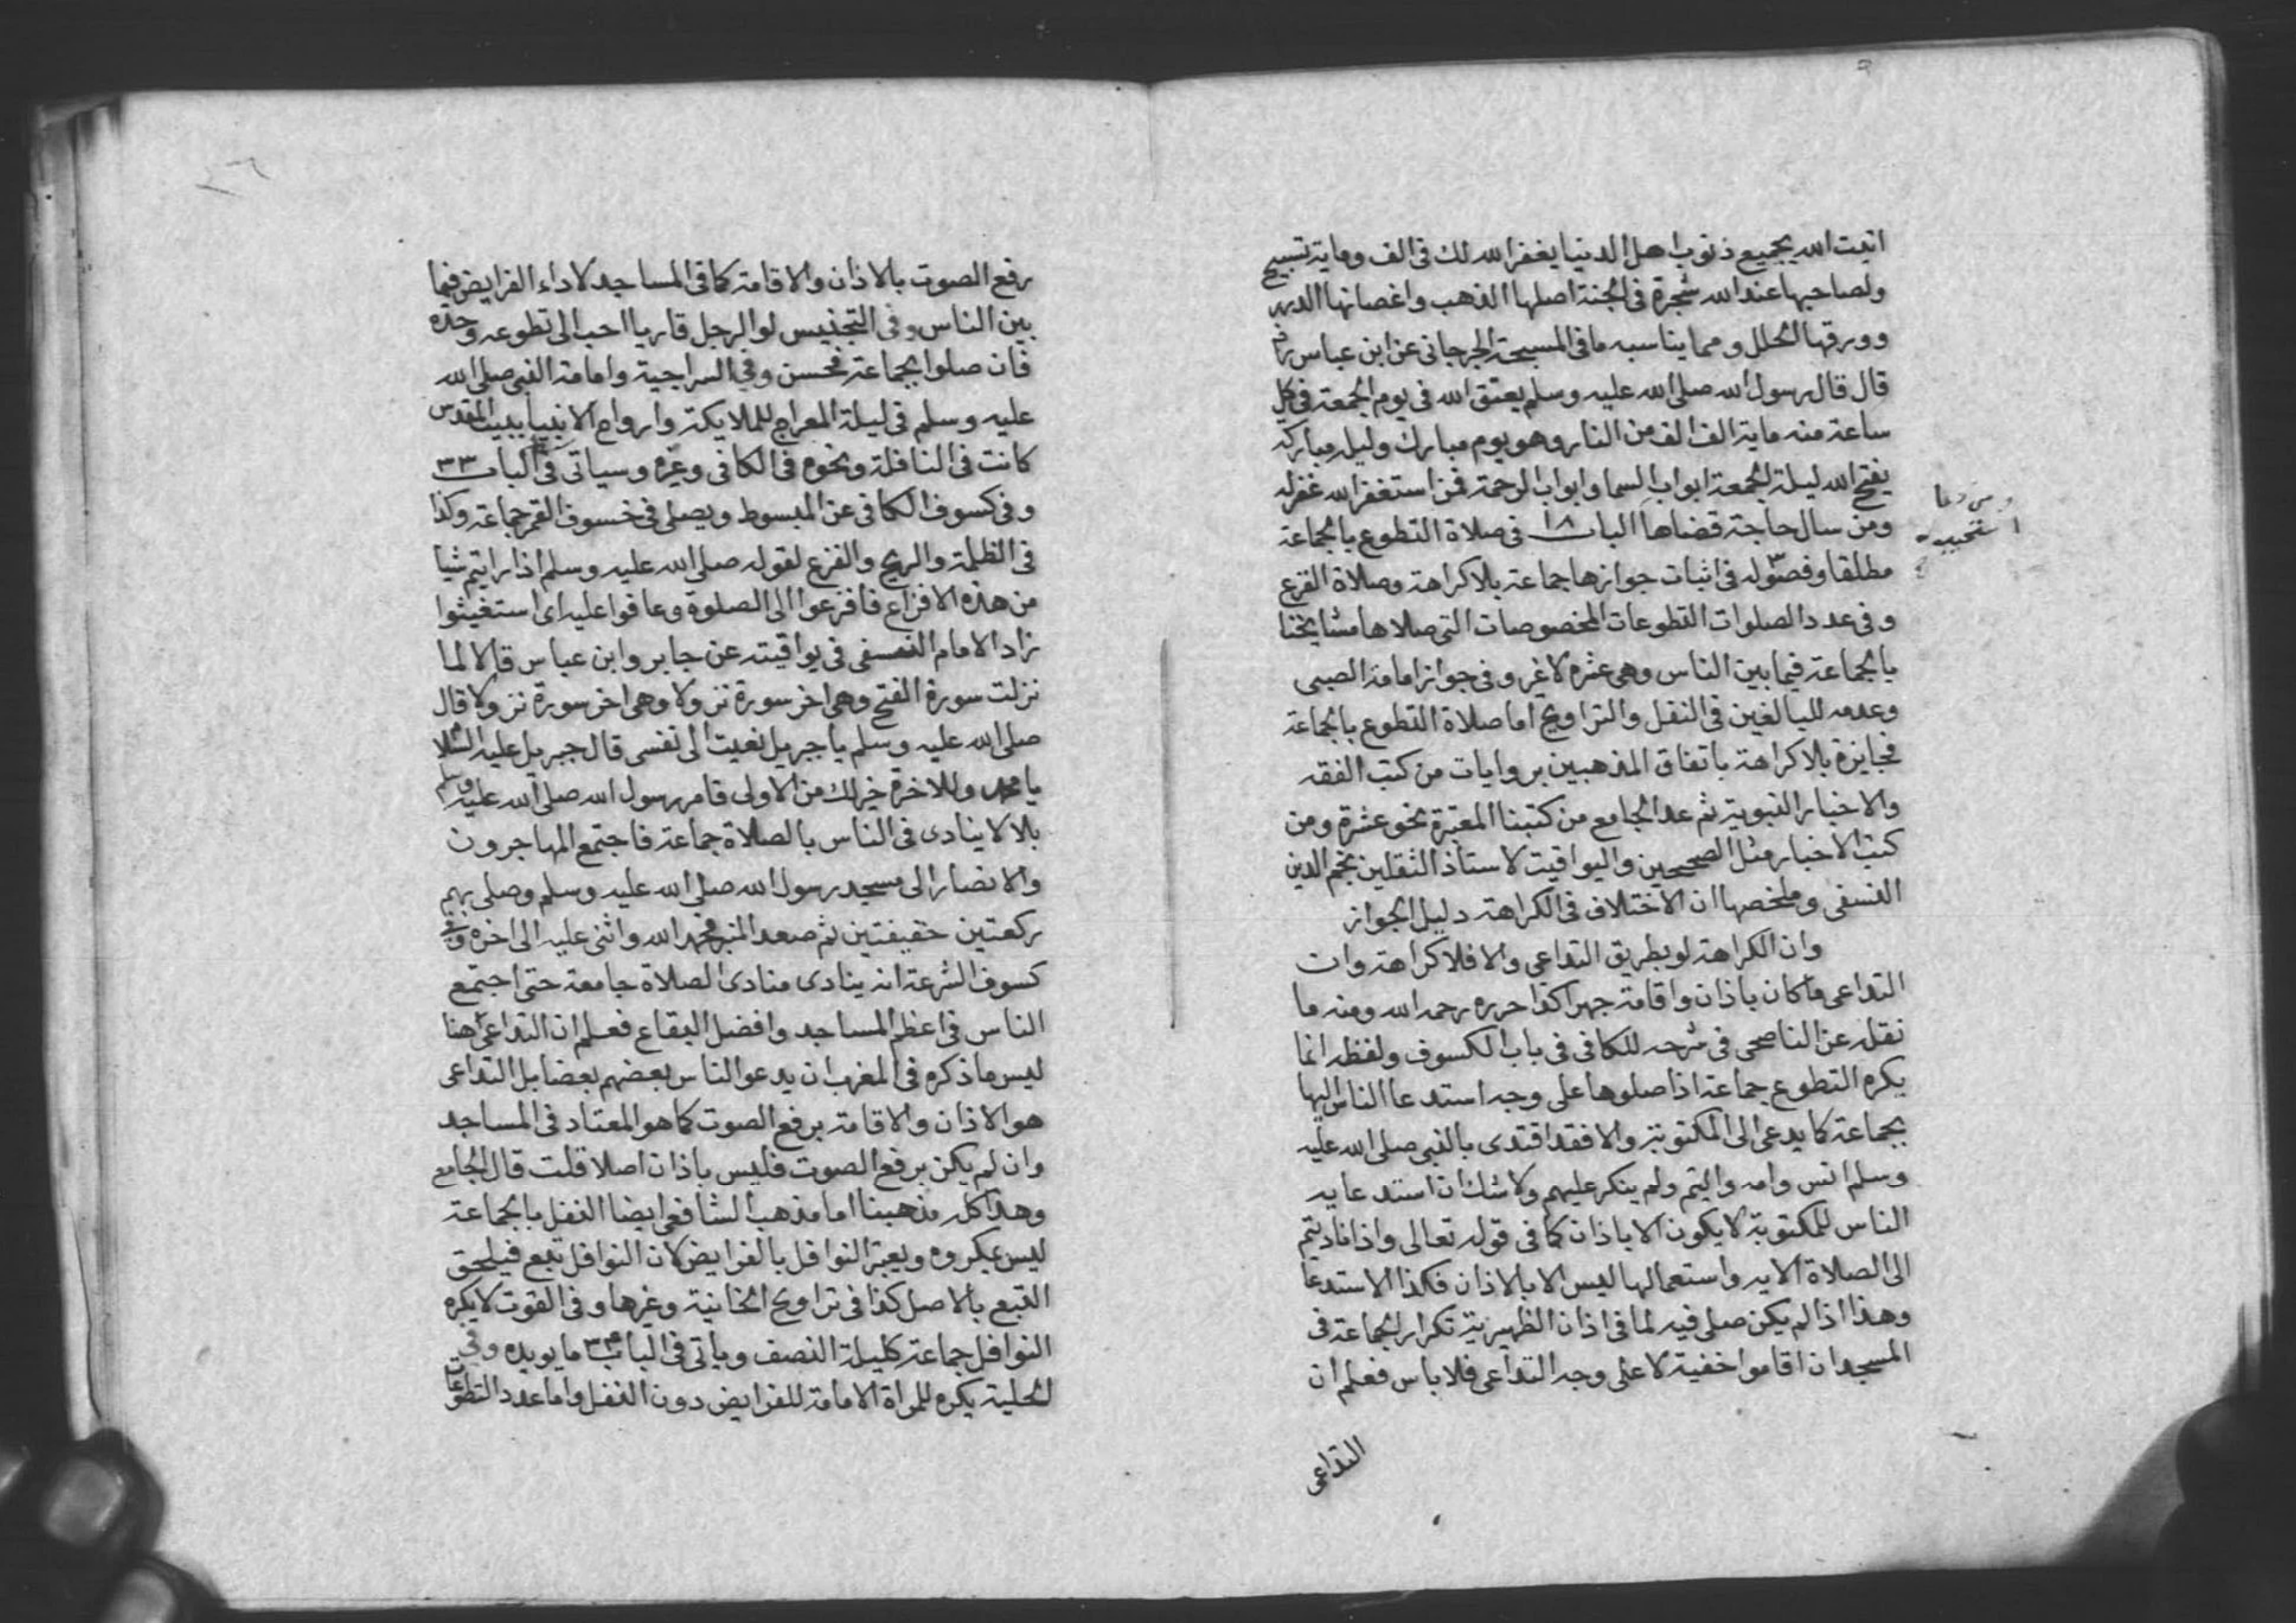 اتيت الله بجميع ذنوب اهل الدنيا يغفر الله لك فى الف وماية تسبيح
ولصاحبها عند الله شجرة فى الجنة اصلها الذهب واغصانها الدر
وورقها الحلل ومما يناسبه ما فى المسبحة الجرجانى عن ابن عباس
قال قال رسول الله صلى الله عليه وسلم يعتق الله فى يوم الجمعة فى كل
ساعة منه ماية الف الف من النار وهو يوم مبارك وليل مباركه
يفتح الله ليلة الجمعة ابواب السما وابواب الرحمة فمن استغفر الله غفر له
ومن سال حاجة قضاها الباب ١٨ فى صلاة التطوع بالجماعة
ومن دعا
استجيب
مطلقا وفصوله فى اثبات جوازها جماعة بلا كراهة وصلاة الفزع
وفى عدد الصلوات التطوعات المخصوصات التى صلاها مشايخنا
بالجماعة فيما بين الناس وهى عشره لا غير وفى جواز امامة الصبى
وعدمه للبالغين فى النفل والتراويح اما صلاة التطوع بالجماعة
فجايزة بلا كراهة باتفاق المذهبين بروايات من كتب الفقه
والاخبار النبوية ثم عد الجامع من كتبنا المعتبرة نحو عشرة ومن
كتب الاخبار مثل الصحيحين واليواقيت لاستاذ الثقلين نجم الدين
النسفى وملخصها ان الاختلاف فى الكراهة دليل الجواز
وان الكراهة لو بطريق التداعى والا فلا كراهة وان
التداعى ما كان باذان واقامة جهرا كذا حرره رحمه الله ومنه ما
نقل عن الناصحى فى شرحه للكافى فى باب الكسوف ولفظه انما
يكره التطوع جماعة اذا صلوها على وجه استدعا الناس اليها
بجماعة كما يدعى الى المكتوبة والا فقد اقتدى بالنبى صلى الله عليه
وسلم انس وامه واليتم ولم ينكر عليهم ولا شك ان استدعا به
الناس للمكتوبة لا يكون الا باذان كما فى قوله تعالى واذا ناديتم
الى الصلاة الايه واستعمالها ليس الا بالاذان فكذا الاستدعا
وهذا اذا لم يكن صلى فيه لما فى اذان الظهيرية تكرار الجماعة فى
المسجد ان اقاموا خفية لا على وجه التداعى فلا باس فعلم ان
التداعى
رفع الصوت بالاذان والاقامة كما فى المساجد لاداء الفرايض فيما
بين الناس وفى التجنيس لو الرجل قاريا احب الى تطوعه وحده
فان صلوا بجماعة فحسن وفى السراجية وامامة النبى صلى الله
عليه وسلم فى ليلة المعراج للملايكة وارواح الانبيا ببيت المقدس
كانت فى النافلة ونحوه فى الكافى وغيره وسياتى فى الباب ٣٣
وفى كسوف الكافى عن المبسوط ويصلى فى خسوف القمر جماعة وكذا
فى الظلمة والريح والفزع لقوله صلى الله عليه وسلم اذا رايتم شيا
من هذه الافزاع فافزعوا الى الصلوة وعافوا عليه اى استغيثوا
زاد الامام النسفى فى يواقيته عن جابر وابن عباس قالا لما
نزلت سورة الفتح وهى اخر سورة نزولا وهى اخر سورة نزولا قال
صلى الله عليه وسلم يا جبريل نعيت الى نفسى قال جبريل عليه السلام
يا محمد وللاخرة خير لك من الاولى فامر رسول الله صلى الله عليه وسلم
بلالا ينادى فى الناس بالصلاة جماعة فاجتمع المهاجرون
والانصار الى مسجد رسول الله صلى الله عليه وسلم وصلى بهم
ركعتين خفيفتين ثم صعد المنبر فحمد الله واثنى عليه الى اخره وفى
كسوف الشرعة انه ينادى منادى الصلاة جامعة حتى اجتمع
الناس فى اعظم المساجد وافضل البقاع فعلم ان التداعى هنا
ليس ما ذكره فى المغرب ان يدعو الناس بعضهم بعضا بل التداعى
هو الاذان والاقامة برفع الصوت كما هو المعتاد فى المساجد
وان لم يكن برفع الصوت فليس باذان اصلا قلت قال الجامع
وهذا كله مذهبنا اما مذهب الشافعى ايضا النفل بالجماعة
ليس بمكروه ويعتبر النوافل بالفرايض لان النوافل تبع فيلحق
التبع بالاصل كذا فى تراويح الخانية وغيرها وفى القوت لا يكره
النوافل جماعة كليلة النصف وياتى فى الباب ٣٣ ما يويده وفى
الحلية يكره للمراة الامامة للفرايض دون النفل واما عدد التطوعات